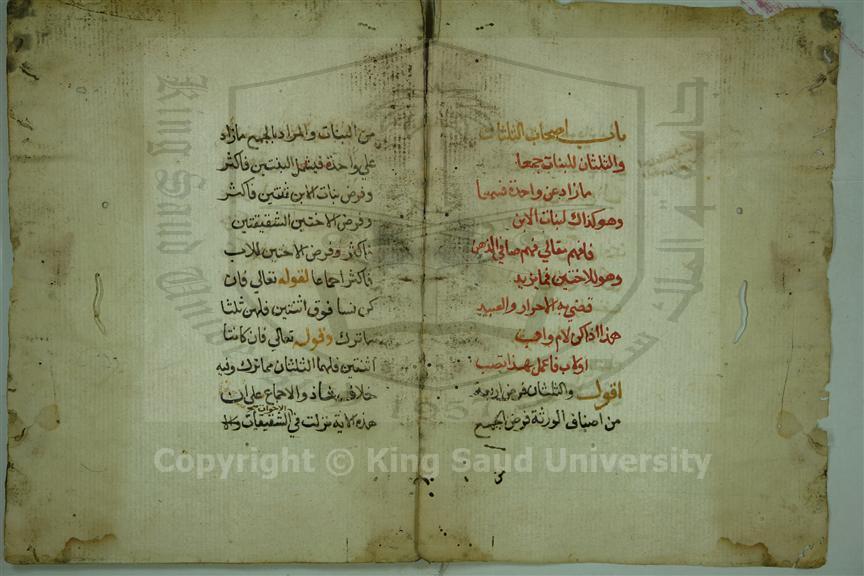 باب اصحاب الثلثان
والثلثان للبنات جمعا
مازاد عن واحدة فسمعا
وهو كذاك لبنات الابن
فافهم مقالي فهم صافي الذهن
وهو للاختين فما يزيد
قضي به الاحرار والعبيد
هذا اذا كن لام واب
اولاب فاعمل بهذا تصب
اقول والثلثان فرض اربعة
من اصناف الورثة فرض الجمع
من
من البنات والمراد بالجمع مازاد
علي واحدة فيشمل البنتين فاكثر
وفرض بنات الابن ثنتين فاكثر
وفرض الاختين الشقيقتين
فاكثر وفرض الاختين للاب
فاكثر اجماعا لقوله تعالي فان
كن نسا فوق اثنتين فلهن ثلثا
ماترك وقوله تعالي فان كانتا
اثنتين فلهما الثلثان مماترك وفيه
خلاف شاذ والاجماع علي ان
الاخوات
هذه الاية نزلت في الشقيقات
Copyright © King Saud University
King Saud University
جامعة الملك سعود
1957